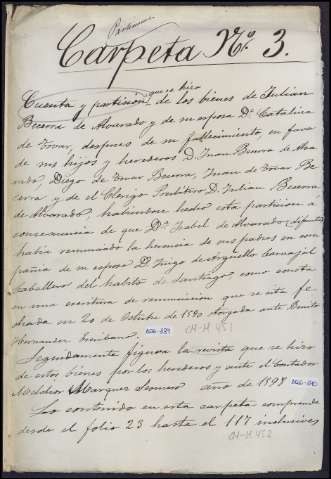 Carpeta N.º 3.
Cuenta y particion que se hizo de los bienes de Julian
Becerra de Alvarado y de su esposa D.ª Catalina
de Tovar, despues de su fallecimiento, en favor
de sus hijos y herederos D. Juan Becerra de Alva
rado, Diego de Tovar Becerra, Juan de Tovar Be
cerra y de el Clerigo Presbitero D. Julian Becerra
de Alvarado, habiendose hecho esta particion á
consecuencia de que D.ª Isabel de Alvarado (difunta)
habia renunciado la herencia de sus padres en com
pañia de su esposo D. Iñigo de Argüello Carvajal
Caballero del habito de Santiago, como consta
en una escritura de renunciacion que se halla fe
chada en 20 de Octubre de 1580 otorgada ante Benito
Hernandez Escribano.
OH-H 451
Seguidamente figura la revista que se hizo
de estos bienes por los herederos y ante el Contador
Melchor Marquez año de 1598
Lo contenido en esta carpeta comprende
desde el folio 23 hasta el 117 inclusives
OH-H 452